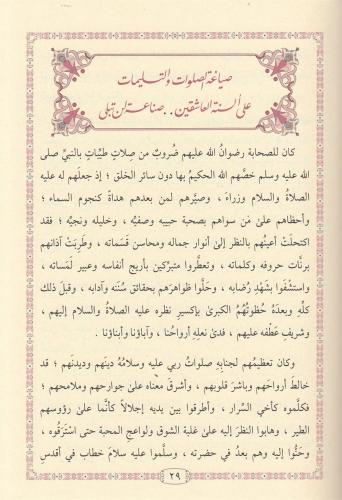 صياغة الصلوات والتسليمات
على ألسنة العاشقين .. صناعة لن تبلى
كان للصحابة رضوانُ الله عليهم ضُروبٌ من صِلاتٍ طيِّباتٍ بالنبيِّ صلى
الله عليه وسلم خصَّهم الله الحكيمُ بها دون سائر الخلق ؛ إذ جعلَهم له عليه
الصلاةُ والسلام وزراءَ ، وصيَّرهم لمن بعدهم هداةً كنجوم السماء ؛
وأحظاهم علىٰ مَن سواهم بصحبة حبيبه وصفيِّه ، وخليله ونجيِّه ؛ فقد
اكتحلَتْ أعينُهم بالنظر إلىٰ أنوار جماله ومحاسن قَسَماته ، وطَرِبَتْ آذانُهم
برنَّات حروفه وكلماته ، وتعطَّروا متبرِّكين بأريج أنفاسه وعبير لَمَساته ،
واستشفَوا بشَهْدِ رُضابه ، وحَلَّوا ظواهرَهم بحقائق سُنَنه وآدابه ، وقبلَ ذلك
كلِّه وبعدَهُ حُظوتُهُمُ الكبرىٰ بإكسيرِ نظره عليه الصلاة والسلام إليهم ،
وشريفِ عَطْفه عليهم ، فدىٰ نعلِهِ أرواحُنا ، وآباؤنا وأبناؤنا .
وكان تعظيمُهم لجنابِهِ صلواتُ ربي عليه وسلامُهُ دينَهم وديدنَهم ؛ قد
خالطَ أرواحَهم وباشرَ قلوبهم ، وأشرقَ معْناه علىٰ جوارحهم وملامحهم ؛
فكلَّموه كأخي السِّرار ، وأطرقوا بين يديه إجلالاً كأنَّما علىٰ رؤوسهم
الطير ، وهابوا النظرَ إليه علىٰ غلبة الشوق ولواعجِ المحبة حتى استرَقُوه ،
وحَنُّوا إليه وهم بعدُ في حضرته ، وسلَّموا عليه سلامَ خطاب في أقدسِ
٢٩